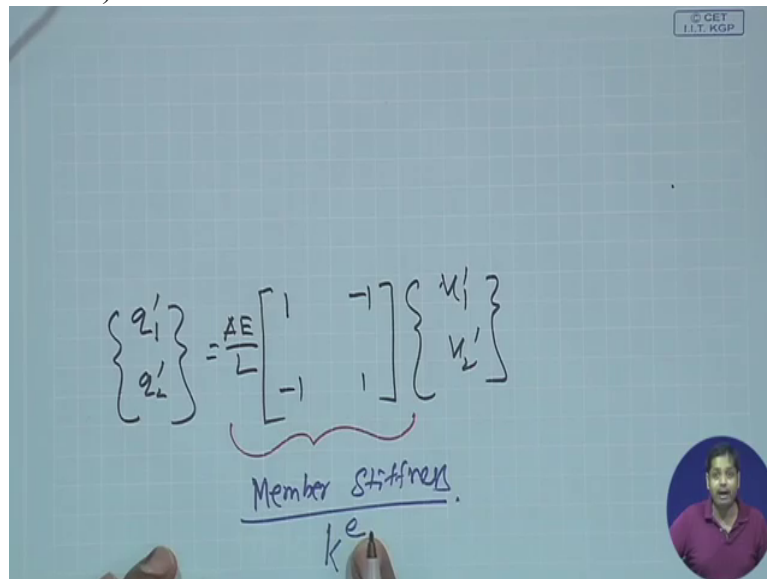 © CET
I.I.T. KGP
{q₁′ q₂′} = AE/L [1 -1 -1 1] {u₁′ u₂′}
Member Stiffness.
kᵉ